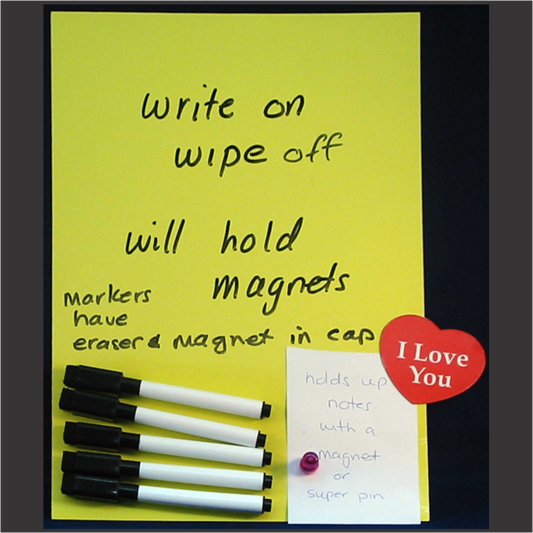 write on
wipe off
will hold
magnets
Markers
have
eraser & magnet in cap
I Love
You
holds up
notes
with a
magnet
or
super pin